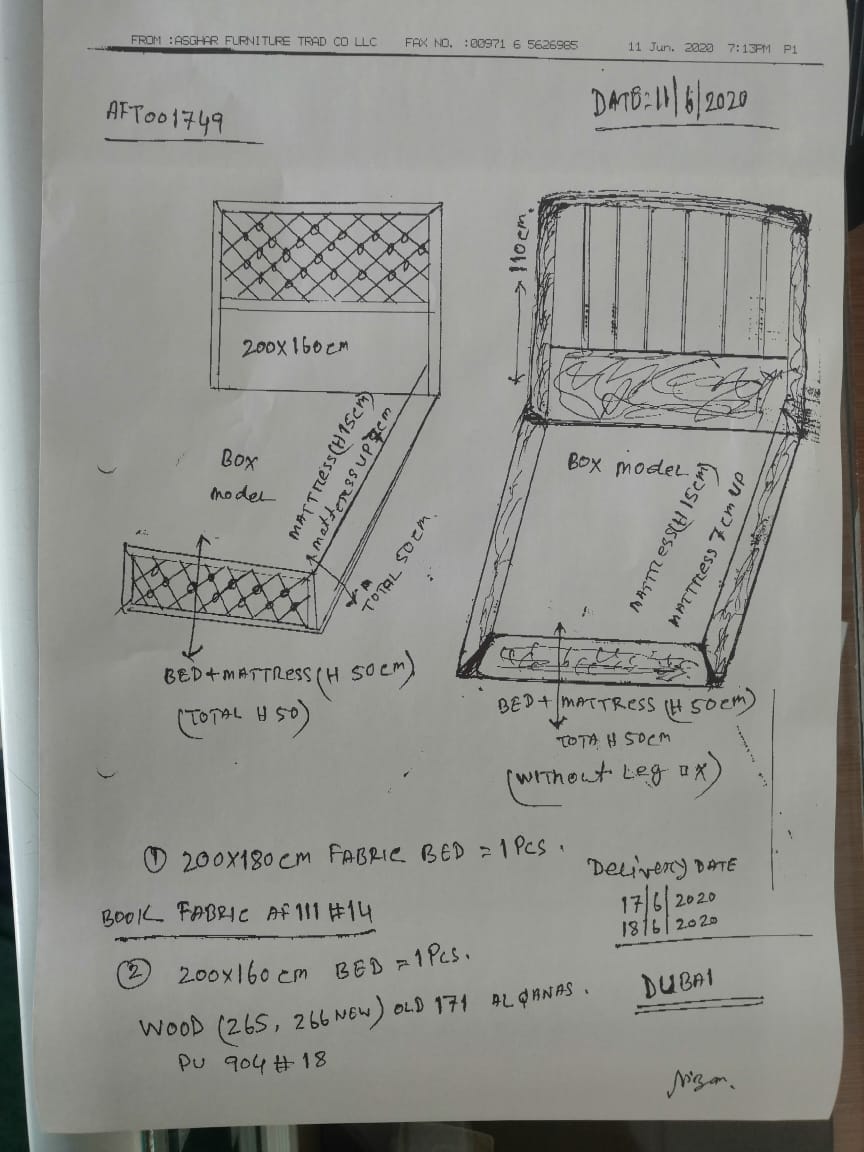 FROM :ASGHAR FURNITURE TRAD CO LLC FAX NO. :00971 6 5626985 11 Jun. 2020 7:13PM P1
AFT001749
DATE:11/6/2020
200X160cm
BOX
model
MATTRESS(H15cm)
mattress UP 7cm
TOTAL 50cm.
BED+MATTRESS(H 50cm)
(TOTAL H 50)
110cm.
BOX model
MATTRESS(H15cm)
MATTRESS 7cm UP
BED+MATTRESS (H 50cm)
TOTA H 50cm
(WITHout Leg
① 200X180cm FABRIC BED = 1 Pcs.
BOOK FABRIC AF 111 #14
Delivery DATE
17/6/2020
18/6/2020
② 200X160cm BED = 1 Pcs.
WOOD (265, 266 NEW) OLD 171 ALQANAS.
PU 904 # 18
DUBAI